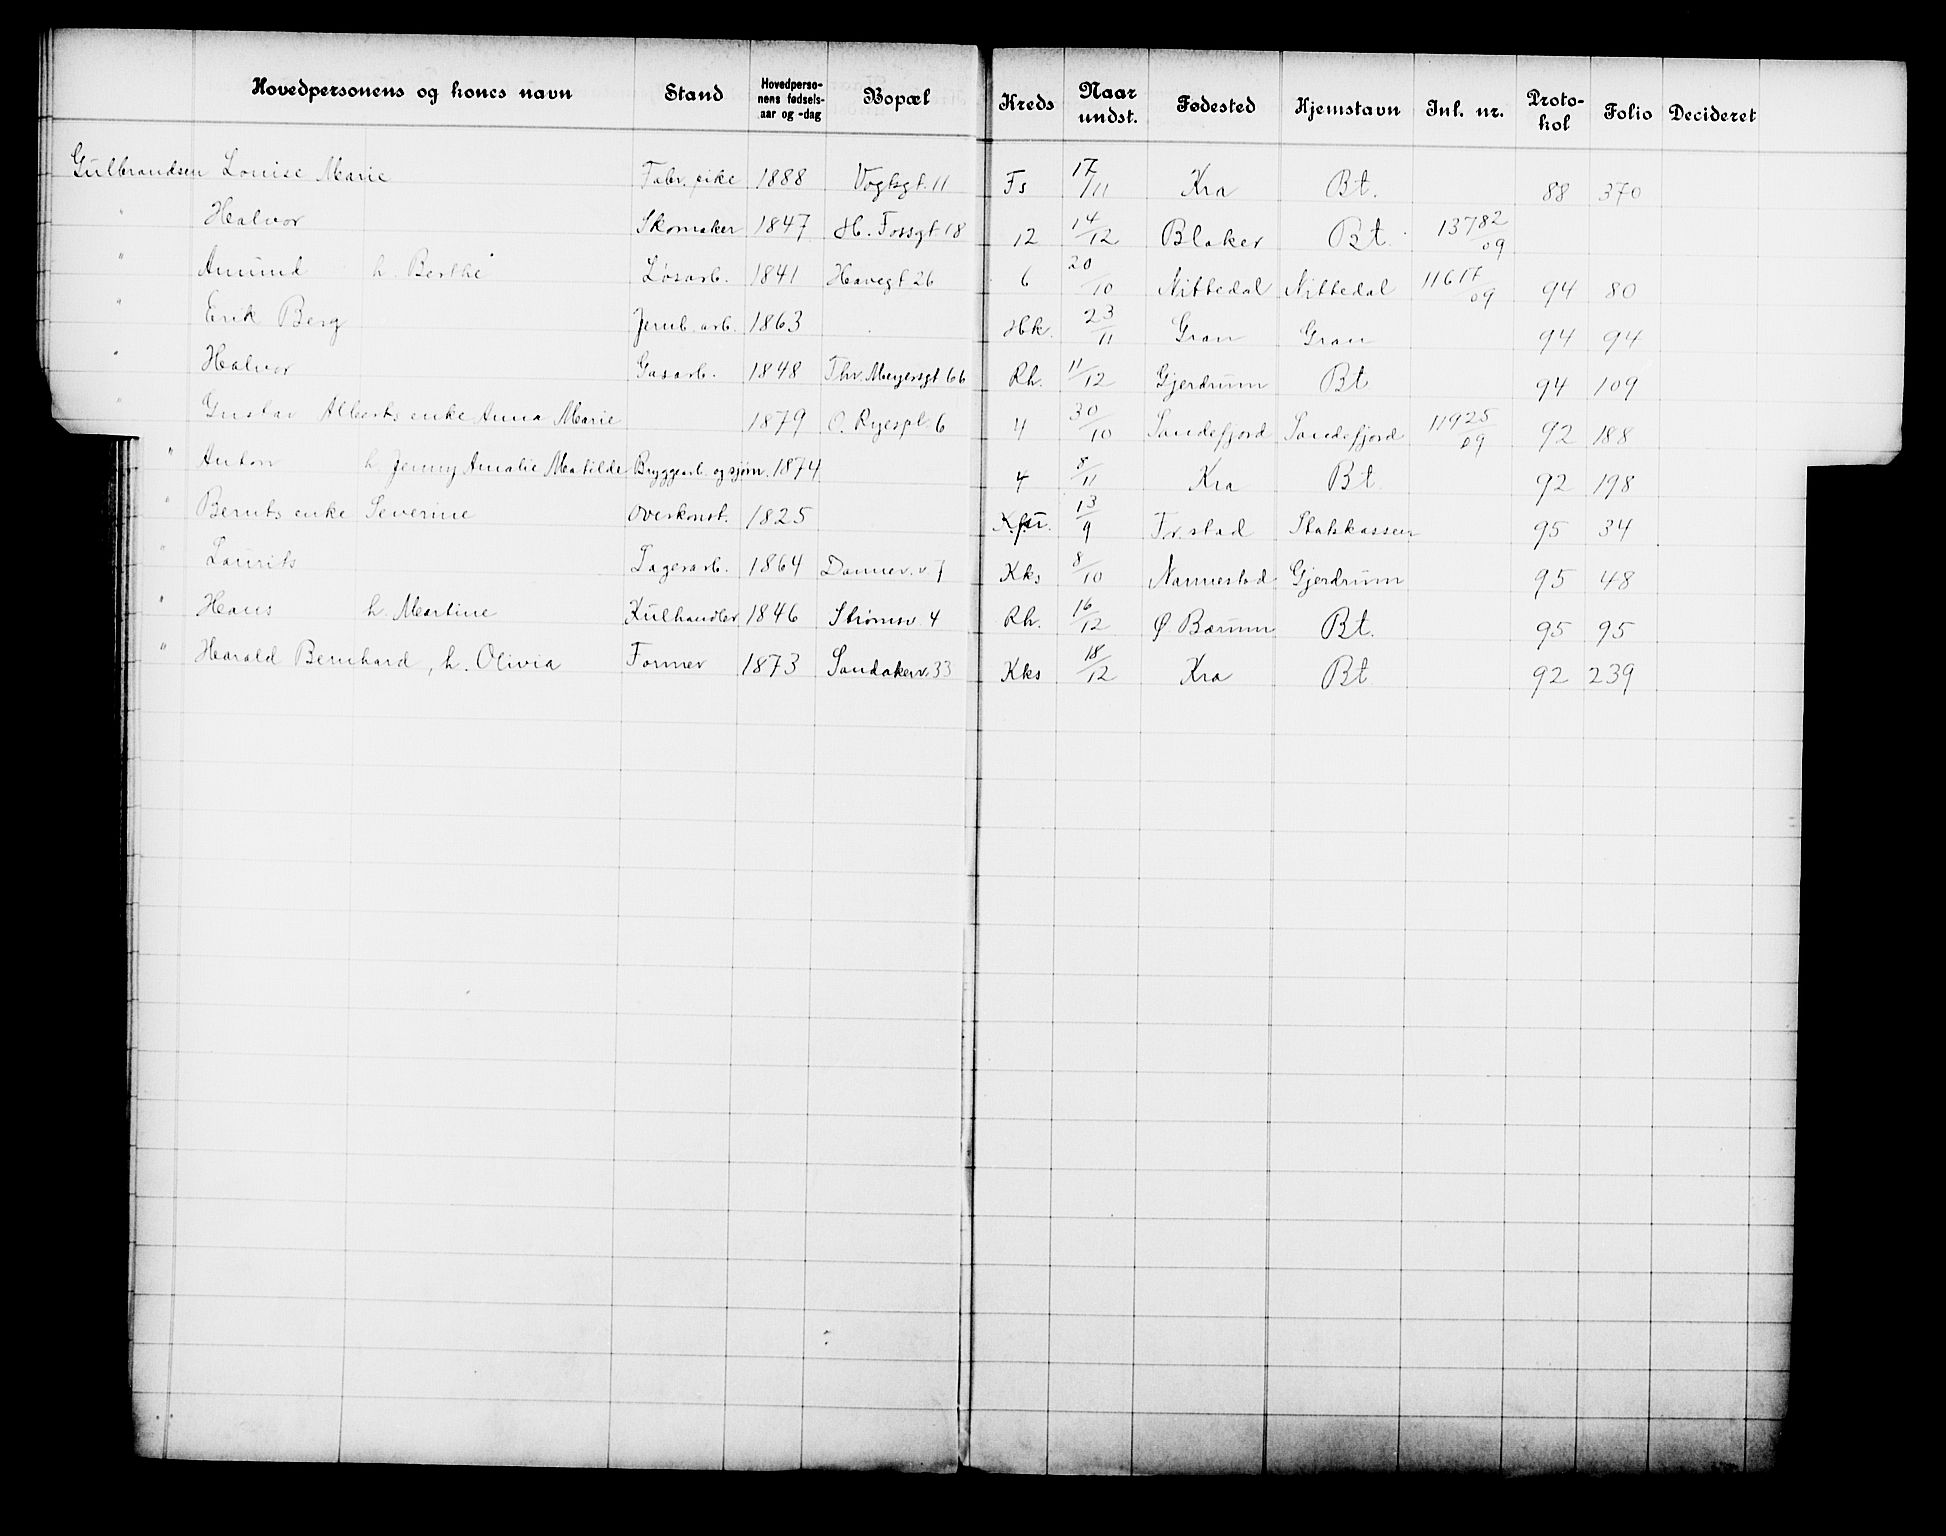 Hovedpersonens og kones navn Stand Hovedperso-nens fødsels-aar og -dag Bopæl Kreds Naar undst. Fødested Hjemstavn Inl. nr. Proto-kol Folio Decideret
Gulbrandsen Louise Marie Fabr. pike 1888 Vogtsgt. 11 Fs 17/11 Kra Bt. 88 370
" Halvor Skomaker 1847 H. Fossgt 18 12 14/12 Blaker Bt. 13782/09
" Amund h. Berthe Løsarb. 1841 Havegt 26 6 20/10 Nittedal Nittedal 11617/09 94 80
" Erik Berg Jernb. arb. 1863 Hk. 23/11 Gran Gran 94 94
" Halvor Gasarb. 1848 Thv. Meyersgt 66 Rh. 11/12 Gjerdrum Bt 94 109
" Gustav Alberts enke Anna Marie 1879 O. Ryespl. 6 4 30/10 Sandefjord Sandefjord 11925/09 92 188
" Anton h. Jenny Amalie Matilde Bryggearb. og sjøm. 1874 4 8/11 Kra Bt. 92 198
" Bernts enke Severine Overkonst. 1825 13/9 Fr.stad Statskassen 95 34
" Laurits Lagerarb. 1864 Dannev. v 7 Kks 8/10 Nannestad Gjerdrum 95 48
" Hans h. Martine Kulhandler 1846 Strømsv 4 Rh. 16/12 Ø. Bærum Bt. 95 95
" Harald Bernhard, h. Olivia Former 1873 Sandakerv. 33 Kks 18/12 Kra Bt 92 239